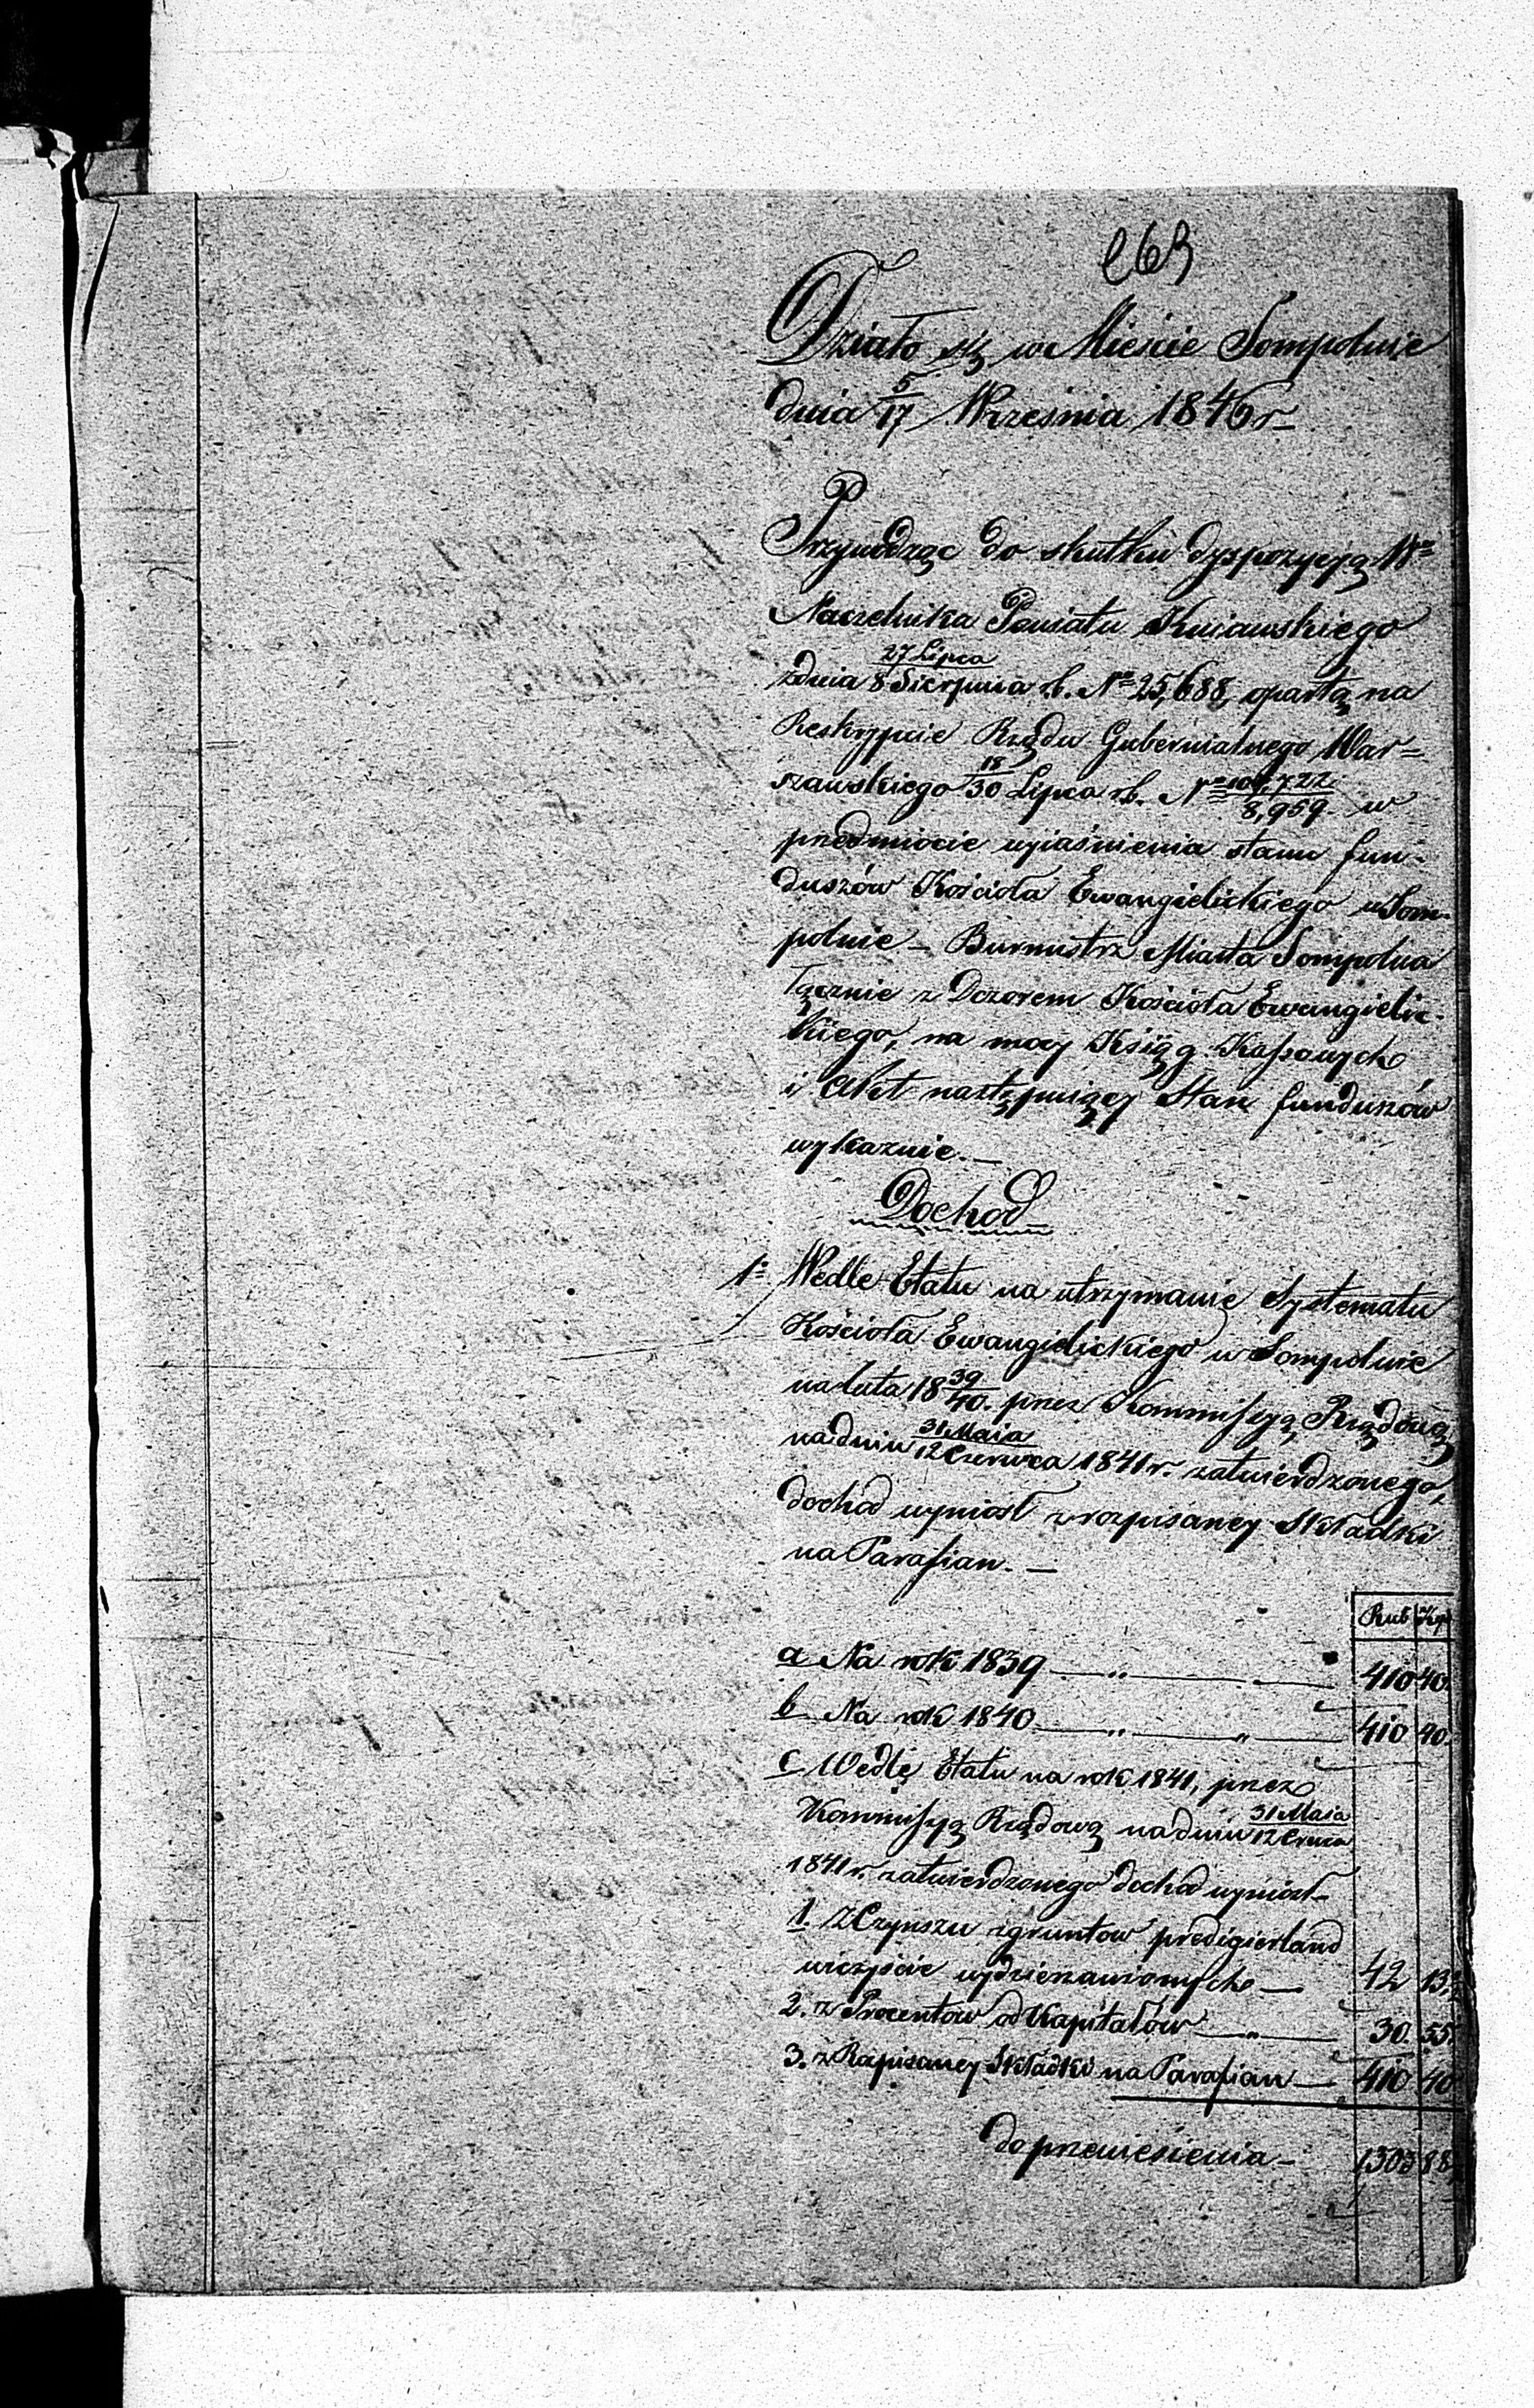 263
Działo się w Mieście Sompolnie
dnia 5/17 Września 1846 r
Przywodząc do skutku dyspozycyą Wo
Naczelnika Powiatu Kuiawskiego
zdnia 27 Lipca/8 Sierpnia rb. No 25,688, opartą na
Reskrypcie Rządu Gubernialnego War=
szawskiego 18/30 Lipca rb. No 104,722/8,959. w
przedmiocie wyiaśnienia stanu fun-
duszów Kościoła Ewangielickiego w Som-
polnie – Burmistrz Miasta Sompolna
łącznie z Dozorem Kościoła Ewangielic-
kiego, na mocy Ksiąg Kassowych
i Akt następuiący Stan funduszów
wykazuie. –
Dochod
1o Wedle Etatu na utrzymanie Systematu
Kościoła Ewangielickiego w Sompolnie
na lata 18 39/40. przez Kommissyą Rządową
nadniu 31 Maia/12 Czerwca 1841 r. zatwierdzonego,
dochod wyniosł z rozpisaney Składki
na Parafian. –
Rub Kop
a Na rok 1839 — „ — 410 40.
b Na rok 1840 — „ — „ — 410 40.
c Wedle Etatu na rok 1841, przez
Kommissyą Rządową nadniu 31 Maia/12 Czerwca
1841 r. zatwierdzonego dochod wyniosł
1. Z Czynszu zgruntow predigierland
wieczyście wydzierzawionych — 42 13
2. z Procentow od Kapitałów — „ — 30. 55
3. z Rozpisaney Składki na Parafian — 410 40
do przeniesienia – 1303 88